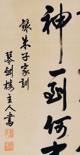 神一到何
錄朱子家訓
琴劍樓主人書